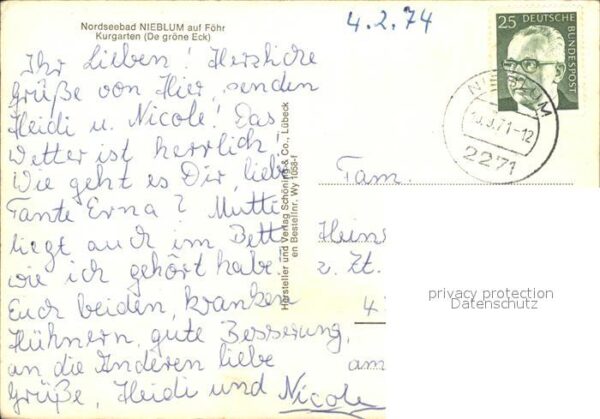 Nordseebad NIEBLUM auf Föhr
Kurgarten (De gröne Eck)
4.2.74
25 DEUTSCHE BUNDESPOST
NIEBLUM
71-12
2271
Ihr Lieben! Herzliche
Grüße von Hier, senden
Heidi u. Nicole! Das
Wetter ist herrlich!
Wie geht es Dir, liebe
Tante Erna? Mutti
liegt auch im Bett
wie ich gehört habe!
Euch beiden, kranken
Hühnern, gute Besserung,
an die Anderen liebe
Grüße, Heidi und Nicole
Hersteller und Verlag Schöning & Co., Lübeck
en Bestellnr. Wy 1058-f
Fam.
Heins
z. Zt.
4
am
privacy protection
Datenschutz